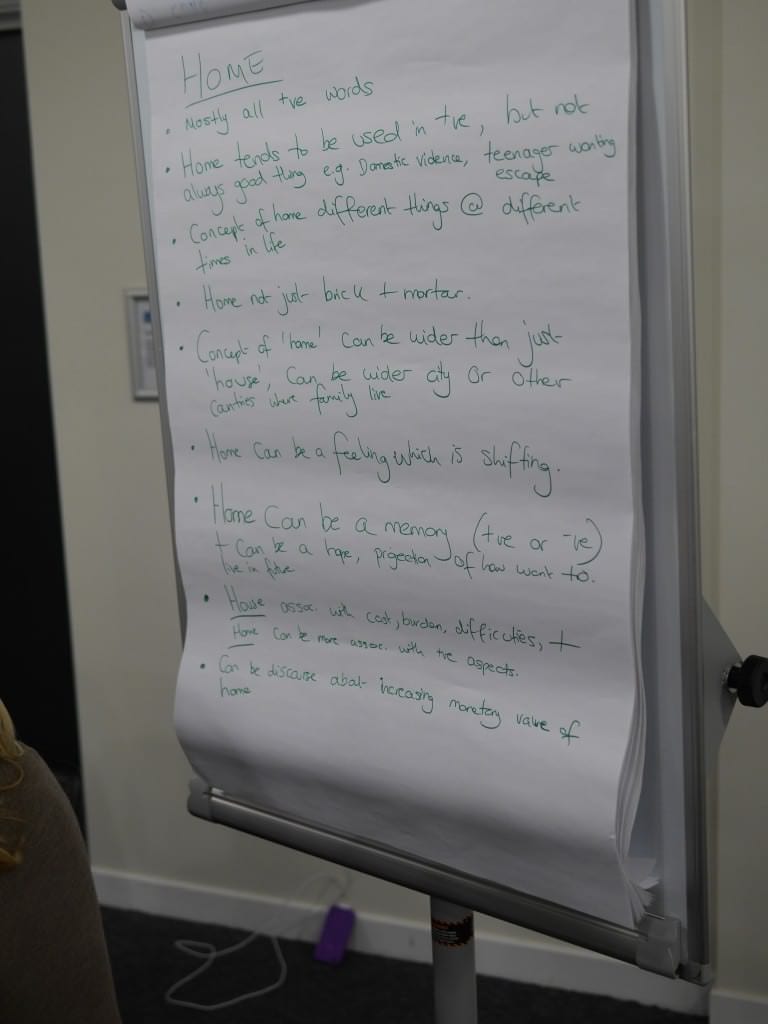 HOME
• Mostly all +ve words
• Home tends to be used in +ve, but not
always good thing e.g. Domestic vidence, teenager wanting
escape
• Concept of home different things @ different
times in life
• Home not just brick + mortar.
• Concept of 'home' can be wider than just
'house', can be wider city or other
countries where family live
• Home can be a feeling which is shifting.
• Home can be a memory (+ve or -ve)
+ can be a hope, projection of how want to.
live in future
• House assoc. with cost, burden, difficulties, +
Home can be more assoc. with +ve aspects.
• Can be discourse about increasing monetary value of
home